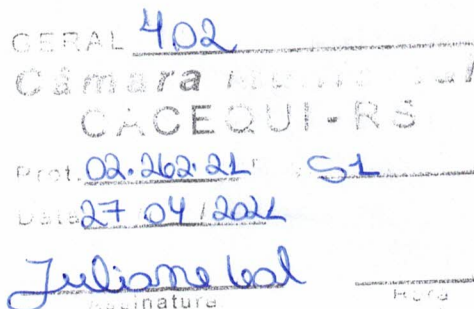 GERAL 402
Câmara Municipal
CACEQUI-RS
Prot. 02.262.21 S1
Data 27 04 / 2021
Juliane Leal
Assinatura Hora